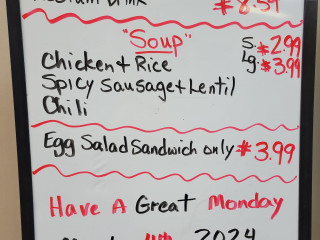 Medium Drink $8.59
"Soup"
Chicken + Rice S. $2.99
Lg. $3.99
Spicy Sausage + Lentil
Chili
Egg Salad Sandwich only $3.99
Have A Great Monday
2024